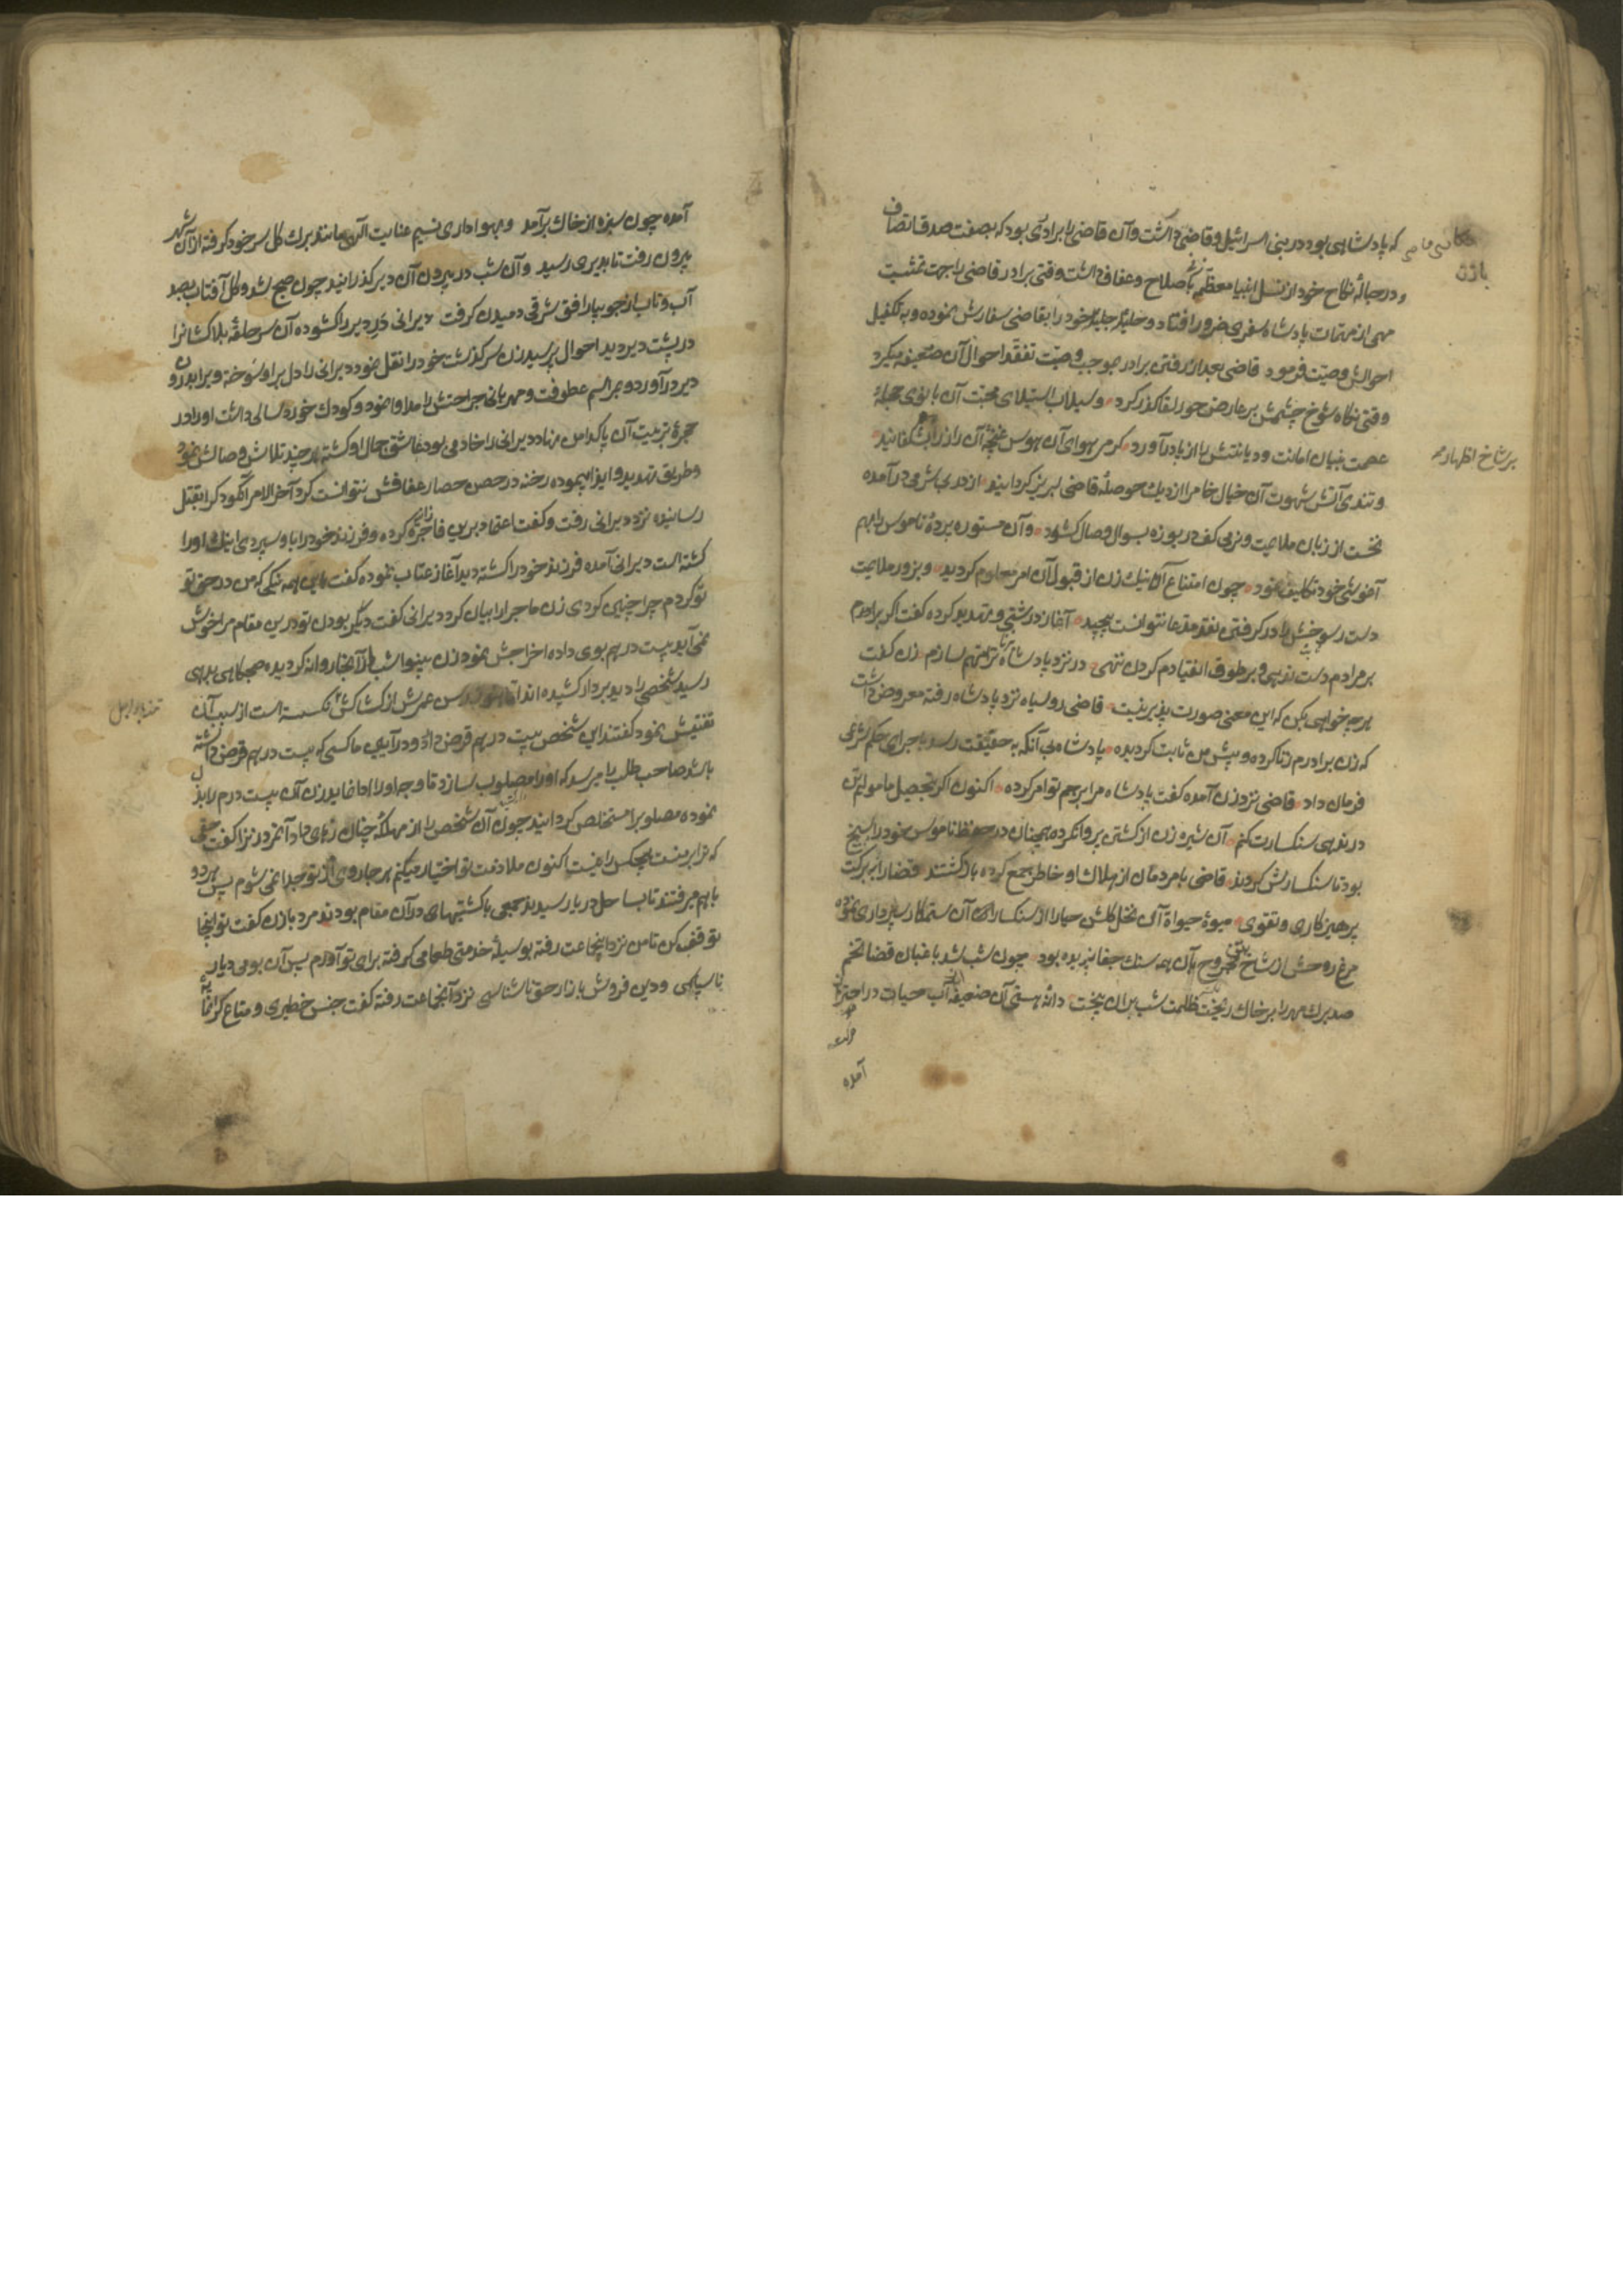 که پادشاهی بود در بنی اسرائیل و قاضی داشت و آن قاضی را برادری بود که بصفت صدق اتصاف
و در حبالهٔ نکاح خود از نسل انبیا معظم زنی باصلاح و عفاف داشت وقتی برادر قاضی را جهت تمشیت
مهمی از مهمات پادشاه سفری ضرور افتاد و حلیلهٔ جلیلهٔ خود را بقاضی سفارش نموده و به تکفیل
احوالش وصیت فرمود قاضی بعد از رفتن برادر بموجب وصیت تفقد احوال آن ضعیفه میکرد
وقتی نگاه شوخ چشمش بر عارض حور لقا گذر کرد و سیلاب استیلای محبت آن بانوی حجلهٔ
عصمت بنیان امانت و دیانتش را از پا درآورد گرمی هوای آن هوس غنچهٔ آن راز را بشکفانید
بر شاخ اظهار
و تندی آتش شهوت آن خیال خام را از دیک حوصلهٔ قاضی لبریز گردانید از در بی شرمی درآمده
نخست از زبان ملایمت و نرمی کف دریوزه بسوال وصال کشود و آن مستوره پردهٔ ناموس را بهم
آغوشی خود تکلیف نمود چون امتناع آن نیک زن از قبول آن امر معلوم گردید و بزور ملایمت
دست رسوخش را در گرفتن نقد مدعا نتوانست پیچید آغاز درشتی و تهدید کرده گفت اگر برادرم
بر مرادم دست ندهی و بر طوق انقیادم گردن ننهی در نزد پادشاه بزنا ترا متهم سازم زن گفت
هر چه خواهی بکن که این معنی صورت پذیر نیست قاضی روسیاه نزد پادشاه رفته معروض داشت
که زن برادرم زنا کرده و پیش من ثابت گردیده پادشاه بی آنکه به حقیقت رسد باجرای حکم شرعی
فرمان داد قاضی نزد زن آمده گفت پادشاه مرا برجم تو امر کرده اکنون اگر بتحصیل مامولم تن
در ندهی سنکسارت کنم آن شیره زن از کشتن پروا نکرده همچنان در حفظ ناموس خود راسخ
بود تا سنکسارش کردند قاضی با مردمان از هلاک او خاطر جمع کرده باز گشتند قضا را از برکت
پرهیزکاری و تقوی میوهٔ حیوة آن نخل گلشن حیا را از سنکسار آن ستمکار سپرداری نموده
مرغ روحش از شاخ تن مجروح بآن همه سنک جفا نپریده بود چون شب شد باغبان قضا تخم
صد برک مهر را بر خاک ریخت ظلمت شب بر آن بیخت دانهٔ هستی آن ضعیفه آب حیات در
آمده
آمده چون سبزه از خاک برآمد و بهواداری نسیم عنایت الهی مانند برک گل سر خود گرفته از آن شهر
بیرون رفت تا بدیری رسید و آن شب در بیرون آن دیر گذرانید چون صبح شد و گل آفتاب بصد
آب و تاب از جویبار افق شرقی دمیدن گرفت دیرانی در دیر را کشوده آن سر حلقهٔ بلاکشانرا
در پشت دیر دید احوال پرسید زن سر گذشت خود را نقل نمود دیرانی را دل بر او سوخته ویرا بدرون
دیر درآورد و بمراسم عطوفت و مهربانی جراحتش را مداوا نمود و کودک خورد سالی داشت او را در
حجرهٔ تربیت آن پاکدامن نهاد دیرانی را خادمی بود عاشق جمال او گشته هر چند تلاش وصالش نمود
و طریق تهدید و ایذا پیموده رخنه در حصن حصار عفافش نتوانست کرد آخر الامر آن کودک را بقتل
رسانیده نزد دیرانی رفت و گفت اعتماد برین فاجره زانیه کرده و فرزند خود را باو سپردی اینک او را
کشته است دیرانی آمده فرزند خود را کشته دید آغاز عتاب نموده گفت با این همه نیکی که من در حق تو
تو کردم چرا چنین کردی زن ماجرا را بیان کرد دیرانی گفت دیگر بودن تو درین مقام مرا خوش
نمی آید بیست درهم بوی داده اخراجش نمود زن بینوا شب از آنجا روانه گردیده صبحگاهی بدهی
رسید شخصی را دید بر دار کشیده اند اما هنوز رسن عمرش از کشاکش نکسسته است از سبب آن
تفتیش نمود گفتند این شخص بیست درهم قرض دارد و در آیین ما کسی که بیست درهم قرض داشته
باشد صاحب طلب را میرسد که او را مصلوب سازد تا وجه او را ادا نماید زن آن بیست درم را بذل
نموده مصلوب را مستخلص گردانید چون آن شخص را از مهلکهٔ چنان رهایی داد آنمرد زن را گفت حقی
که ترا بر منست هیچکس را نیست اکنون ملازمت تو اختیار میکنم هر جا روی از تو جدا نمی شوم پس هر دو
باهم میرفتند تا بساحل دریا رسیدند جمعی با کشتیهای در آن مقام بودند مرد با زن گفت تو اینجا
توقف کن تا من نزد اینجماعت رفته بوسیلهٔ خدمتی طعامی گرفته برای تو آورم پس آن بومی دیار
ناسپاسی و دین فروش بازار حق ناشناسی نزد آنجماعت رفته گفت جنس خطیری و متاع گرانمایه